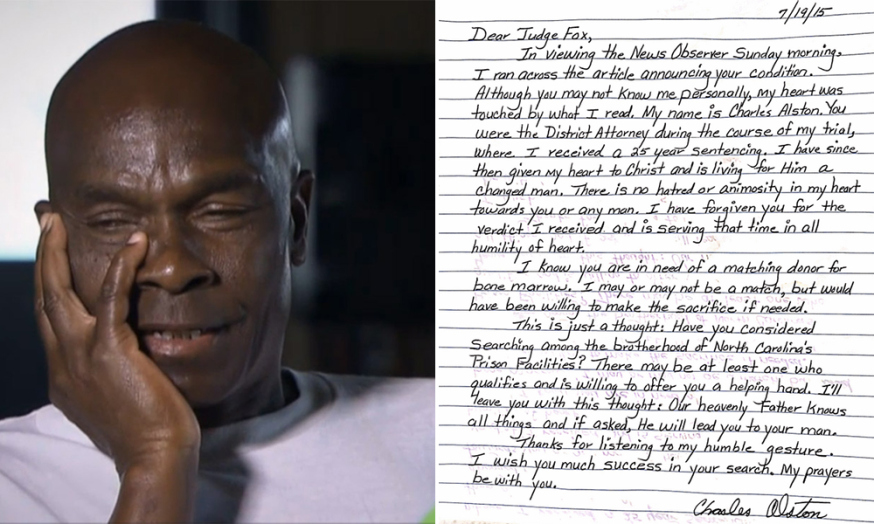 7/19/15
Dear Judge Fox,
In viewing the News Observer Sunday morning,
I ran across the article announcing your condition.
Although you may not know me personally, my heart was
touched by what I read. My name is Charles Alston. You
were the District Attorney during the course of my trial,
where I received a 25 year sentencing. I have since
then given my heart to Christ and is living for Him a
changed man. There is no hatred or animosity in my heart
towards you or any man. I have forgiven you for the
verdict I received and is serving that time in all
humility of heart.
I know you are in need of a matching donor for
bone marrow. I may or may not be a match, but would
have been willing to make the sacrifice if needed.
This is just a thought: Have you considered
Searching among the brotherhood of North Carolina's
Prison Facilities? There may be at least one who
qualifies and is willing to offer you a helping hand. I'll
leave you with this thought: Our heavenly Father knows
all things and if asked, He will lead you to your man.
Thanks for listening to my humble gesture.
I wish you much success in your search. My prayers
be with you.
Charles Alston